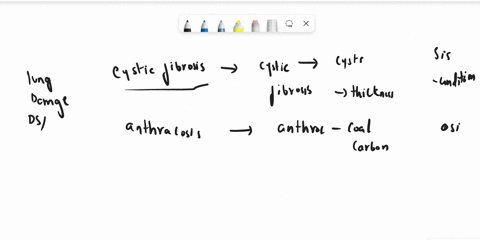 lung
Damage
DS/
cystic fibrosis → cystic → cysts
fibrosis → thickness
Sis
- condition
anthracosis → anthrac - Coal
Carbon
osi